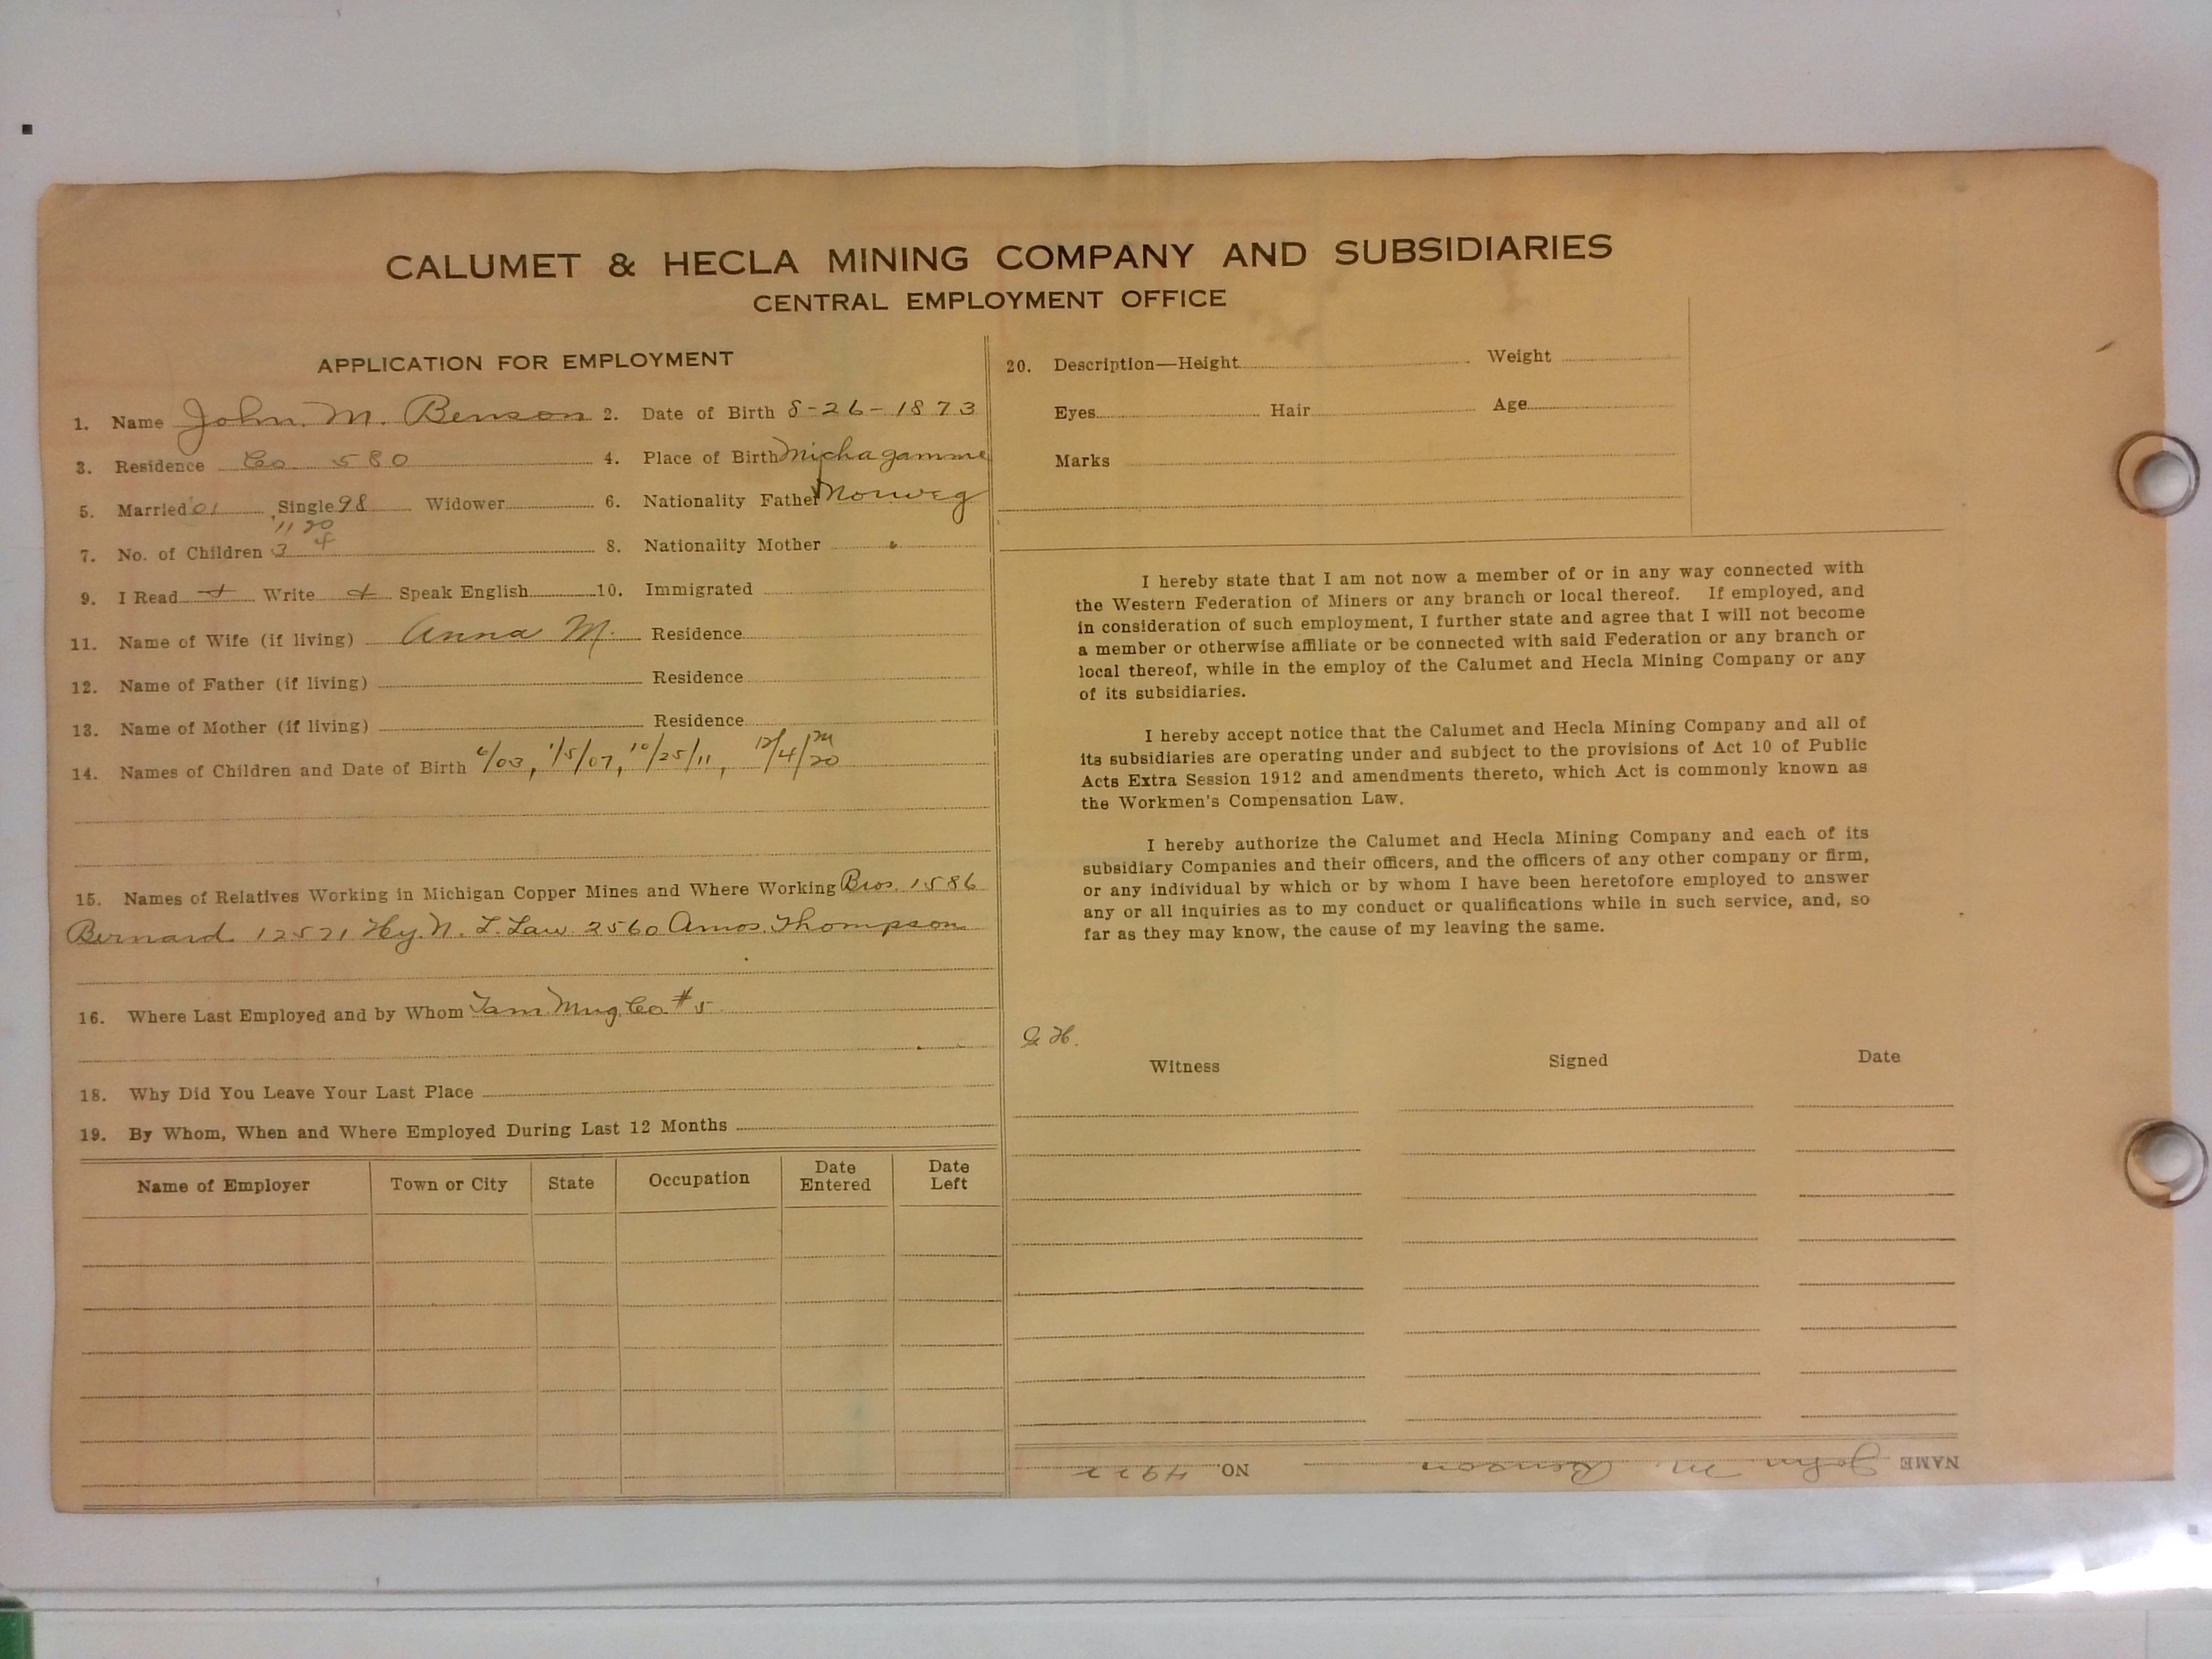 CALUMET & HECLA MINING COMPANY AND SUBSIDIARIES
CENTRAL EMPLOYMENT OFFICE
APPLICATION FOR EMPLOYMENT
1. Name John M. Benson 2. Date of Birth 8-26-1873
3. Residence Co 580 4. Place of Birth Michagamme
5. Married '01 Single 98 Widower 6. Nationality Father Norweg
'11 20
7. No. of Children 3 4 8. Nationality Mother
9. I Read + Write + Speak English 10. Immigrated
11. Name of Wife (if living) Anna M. Residence
12. Name of Father (if living) Residence
13. Name of Mother (if living) Residence
14. Names of Children and Date of Birth 6/03, 1/5/07, 10/25/11, 12/4/20
15. Names of Relatives Working in Michigan Copper Mines and Where Working Bros. 1586
Bernard 12521 Hy. N. L. Law 2560 Amos Thompson
16. Where Last Employed and by Whom Tam. Mng. Co. #5
18. Why Did You Leave Your Last Place
19. By Whom, When and Where Employed During Last 12 Months
Name of Employer Town or City State Occupation Date Entered Date Left
20. Description—Height Weight
Eyes Hair Age
Marks
I hereby state that I am not now a member of or in any way connected with
the Western Federation of Miners or any branch or local thereof. If employed, and
in consideration of such employment, I further state and agree that I will not become
a member or otherwise affiliate or be connected with said Federation or any branch or
local thereof, while in the employ of the Calumet and Hecla Mining Company or any
of its subsidiaries.
I hereby accept notice that the Calumet and Hecla Mining Company and all of
its subsidiaries are operating under and subject to the provisions of Act 10 of Public
Acts Extra Session 1912 and amendments thereto, which Act is commonly known as
the Workmen's Compensation Law.
I hereby authorize the Calumet and Hecla Mining Company and each of its
subsidiary Companies and their officers, and the officers of any other company or firm,
or any individual by which or by whom I have been heretofore employed to answer
any or all inquiries as to my conduct or qualifications while in such service, and, so
far as they may know, the cause of my leaving the same.
Witness Signed Date
NAME John M. Benson NO. 4922